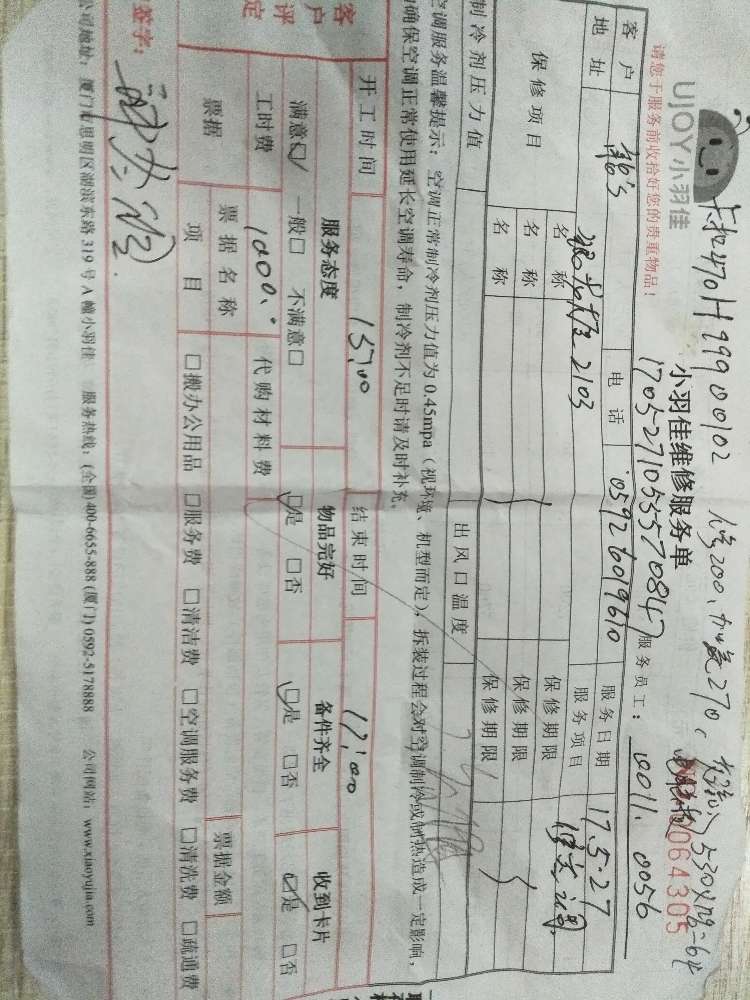 卡扣动H99900102 修200、加氟270,
UJOY小羽佳
小羽佳维修服务单
0064305
1705271055570847
请您于服务前收拾好您的贵重物品!
服务员工: 0011. 0056
客户
电话 05926019610
服务日期 17.5.27
地址 2103
服务项目 修空调
保修项目
名称
保修期限
名称
保修期限
名称
保修期限
制冷剂压力值
出风口温度
空调服务温馨提示:空调正常制冷剂压力值为0.45mpa(视环境、机型而定),拆装过程会对空调制冷或制热造成一定影响,
确保空调正常使用延长空调寿命,制冷剂不足时请及时补充。
开工时间 15:00 结束时间 17:00
客户评定
服务态度 物品完好 备件齐全 收到卡片
满意☑ 一般□ 不满意□ ☑是 □否 ☑是 □否 ☑是 □否
工时费 1000.- 代购材料费
票据 票据名称 票据金额
项目 □搬办公用品 □服务费 □清洁费 □空调服务费 □清洗费 □疏通费
签字:
公司地址:厦门市思明区湖滨东路319号A幢小羽佳 服务热线:(全国)400-6655-888 (厦门) 0592-5178888 公司网站:www.xiaoyujia.com